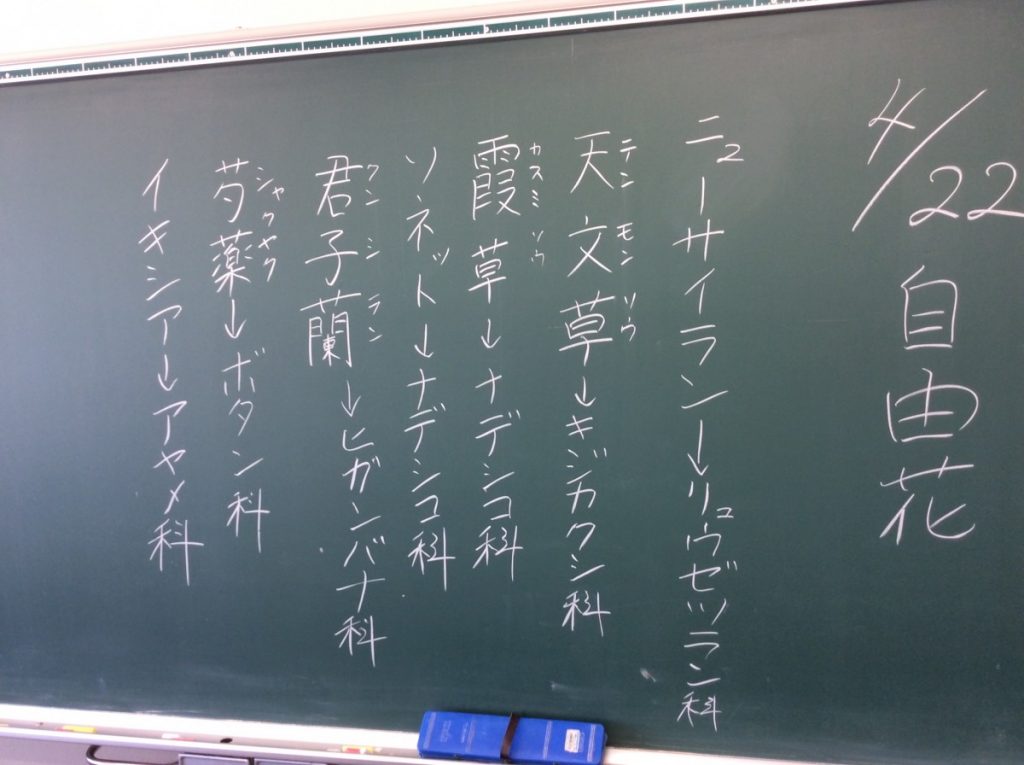 4/22 自由花
ニューサイラン→リュウゼツラン科
天文草→キジカクシ科
テンモンソウ
霞草→ナデシコ科
カスミソウ
ソネット→ナデシコ科
君子蘭→ヒガンバナ科
クンシラン
芍薬→ボタン科
シャクヤク
イキシア→アヤメ科